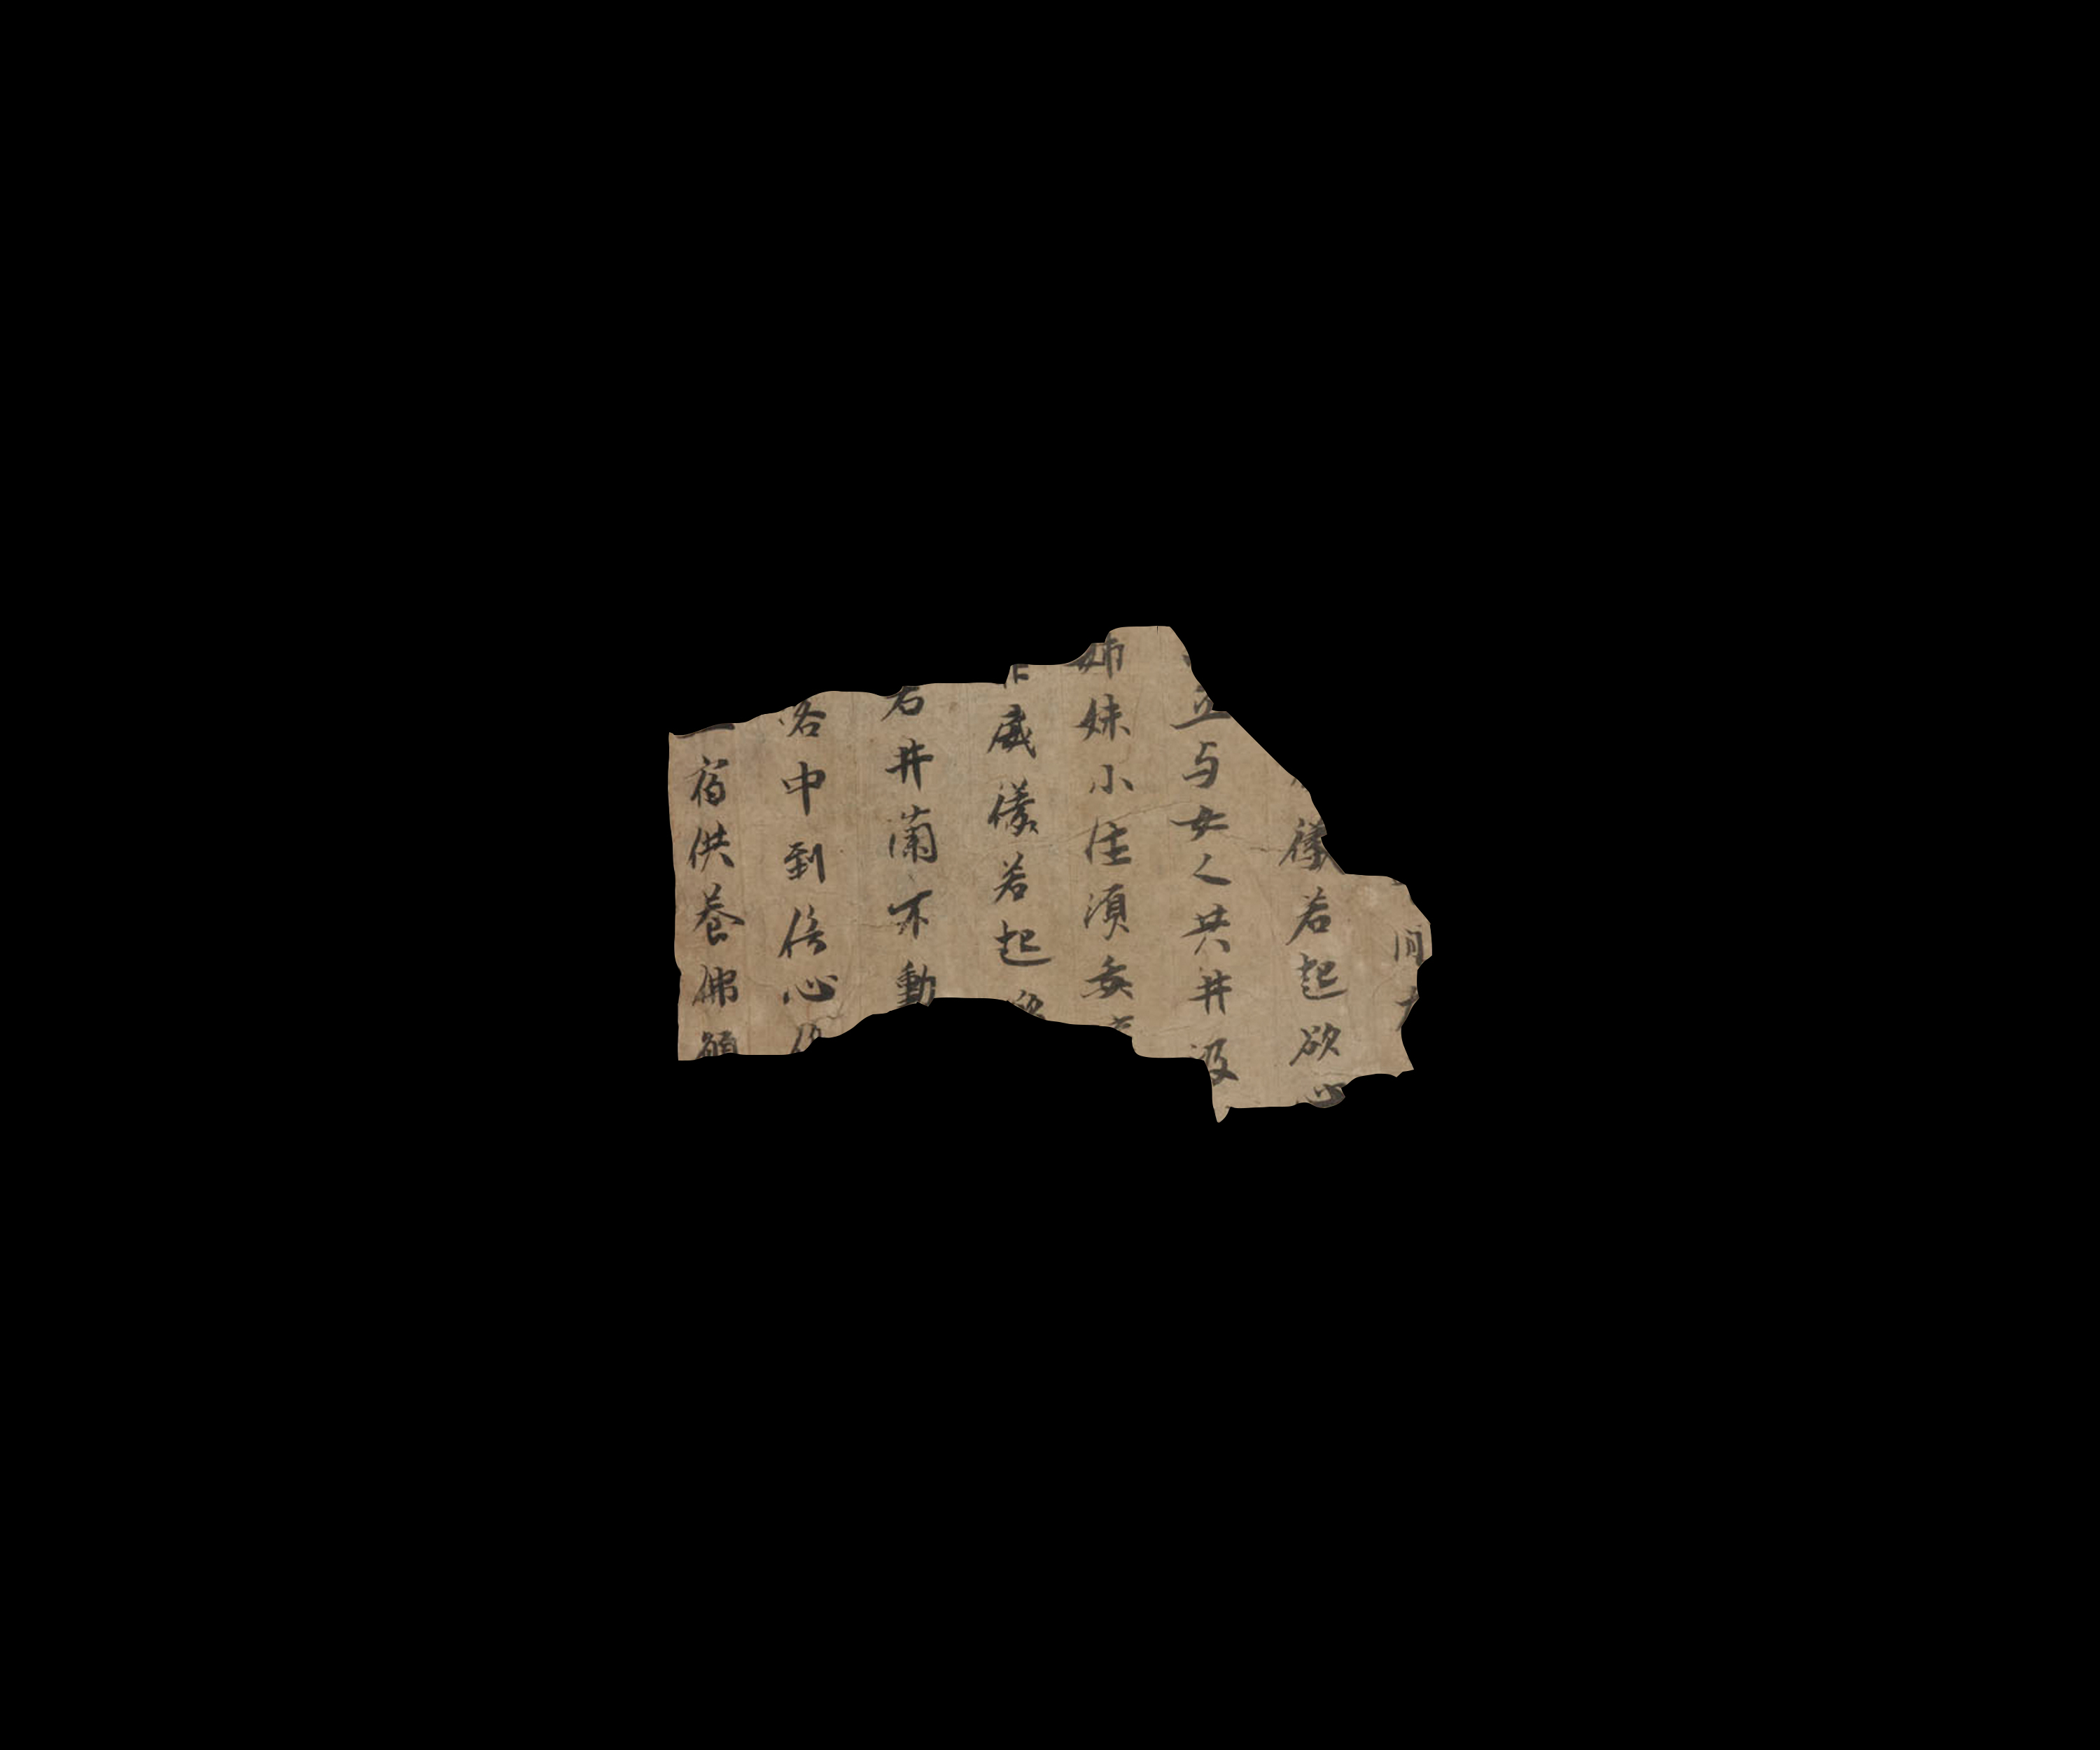 间
儀若起欲心
立与女人共井汲
姉妹小住須矣
威儀若起
右井蘭不動
各中到信心
宿供養佛